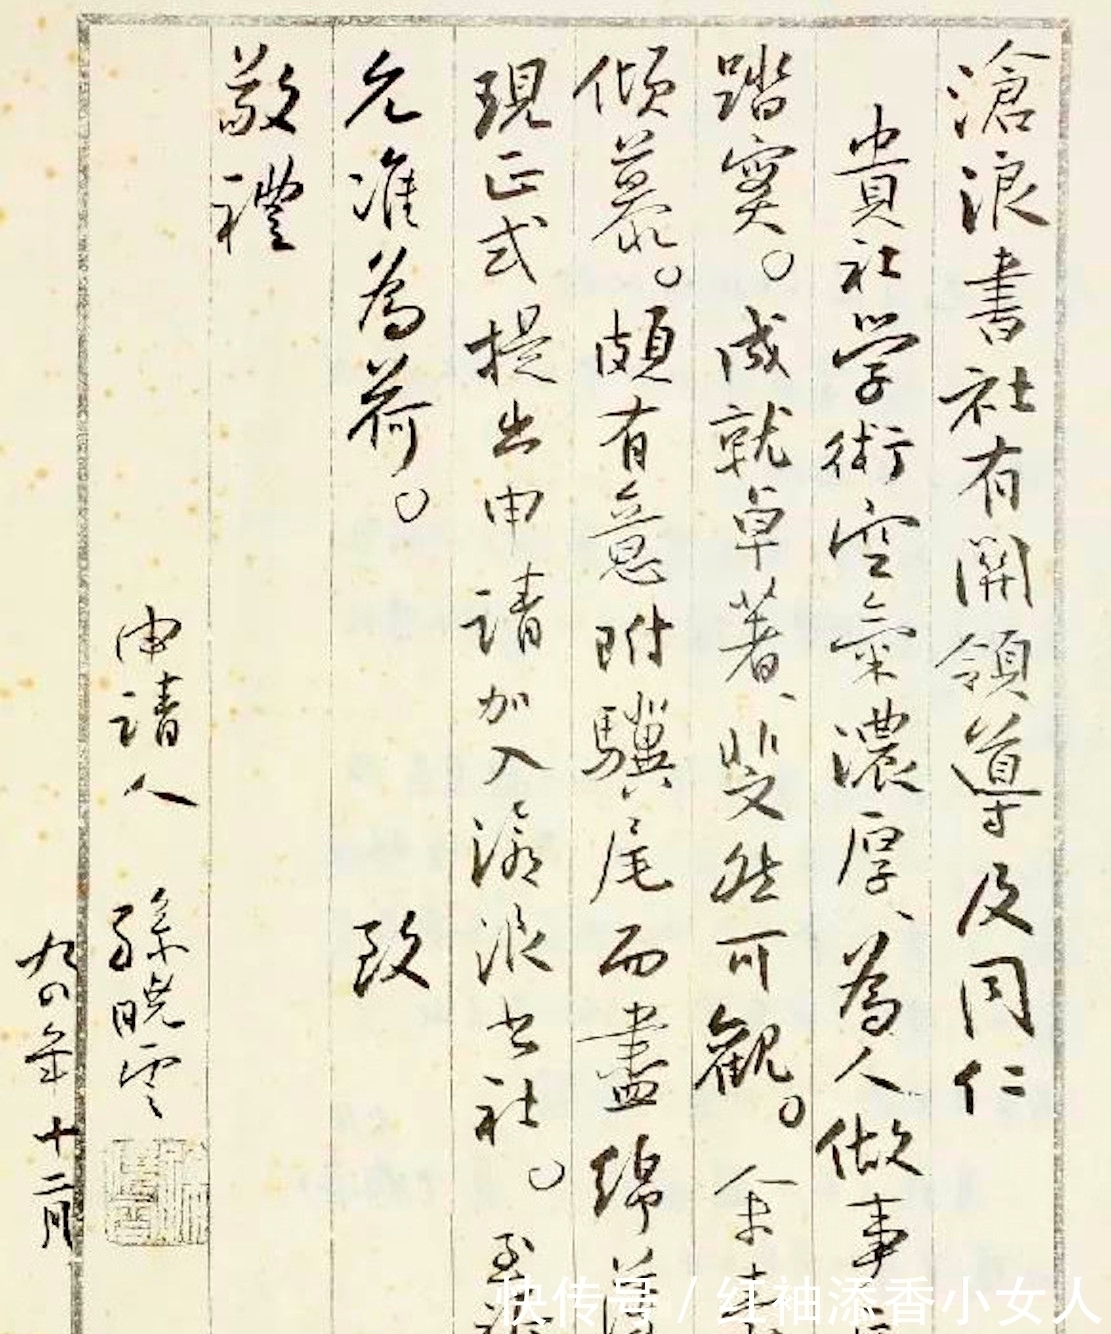 滄浪書社有關領導及同仁
貴社学術空氣濃厚、為人做事
踏實。成就卓著、斐然可觀。余
傾慕。頗有意附驥尾而盡綿薄
現正式提出申請加入滄浪书社。至
允准為荷。 致
敬禮
申請人 孫曉雲
九四年十二月
快传号 / 红袖添香小女人